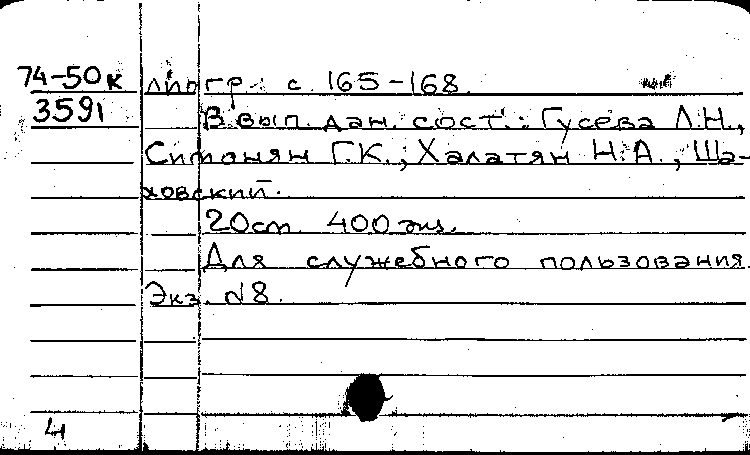 74-50к лиогр.: с. 165-168.
3591 В вып. дан. сост.: Гусева Л.Н.,
Симонян Г.К., Халатян Н.А., Ша-
ховский.
20 см. 400 экз.
Для служебного пользования.
Экз. №8.
4